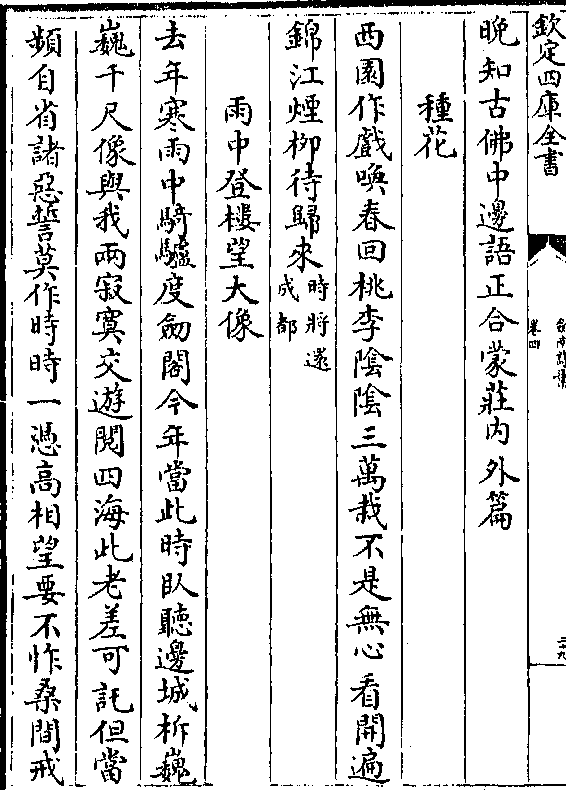 欽定四庫全書
卷四
晚知古佛中邊語正合蒙莊内外篇
種花
西園作戲喚春回桃李隂隂三萬栽不是無心看開遍
錦江煙栁待歸來時將還成都
雨中登樓望大像
去年寒雨中騎驢度劒閣今年當此時臥聽邊城柝巍
巍千尺像與我兩寂寞交遊閱四海此老差可託但當
頻自省諸惡誓莫作時時一憑高相望要不怍桑間戒